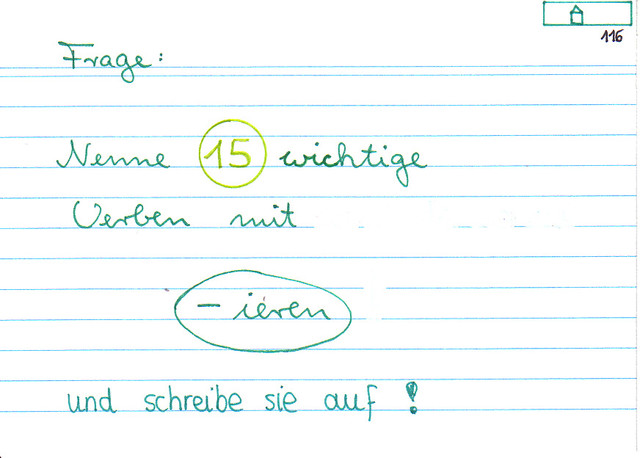 116
Frage:
Nenne 15 wichtige
Verben mit
- ieren
und schreibe sie auf!